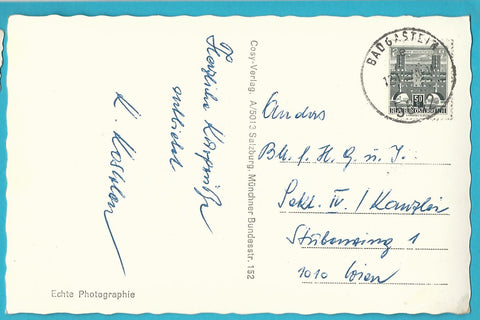 Herzliche Kurgrüße
entbietet
Cosy-Verlag, A/5013 Salzburg, Münchner Bundesstr. 152
Echte Photographie
BADGASTEIN
50
An das
BM. f. H. G. u. I.
Sekt. IV. / Kanzlei
Stubenring 1
1010 Wien